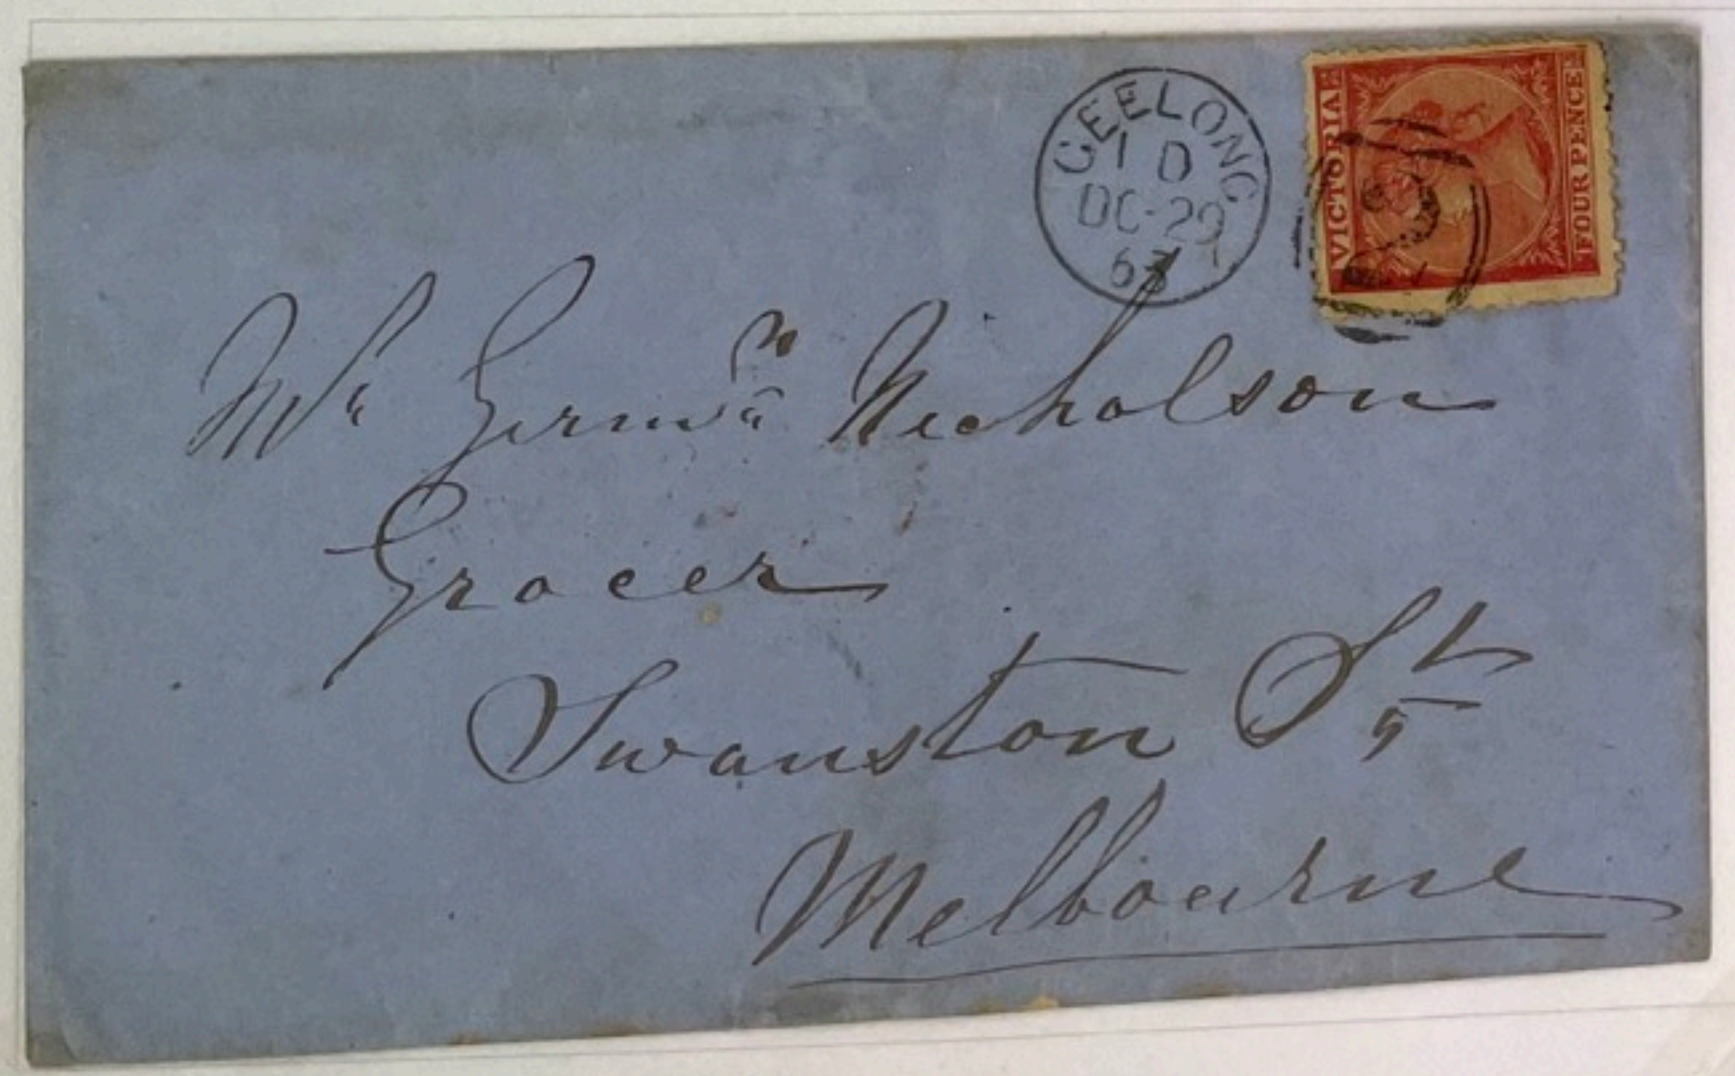 GEELONG
1 D
DC-29
63
VICTORIA
FOUR PENCE
2
Mr Germn Nicholson
Grocer
Swanston St
Melbourne